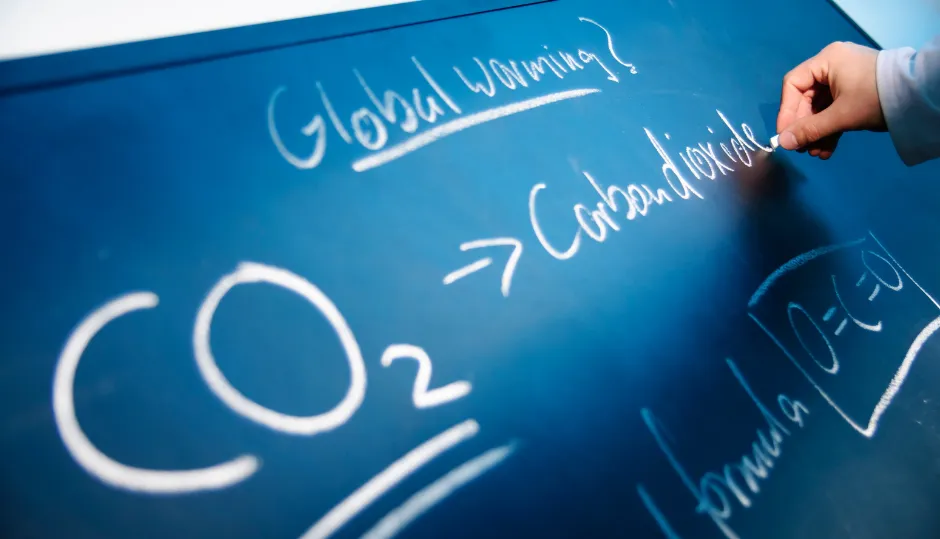 Global warming?
CO2
=> Carbondioxide
formula O=C=O